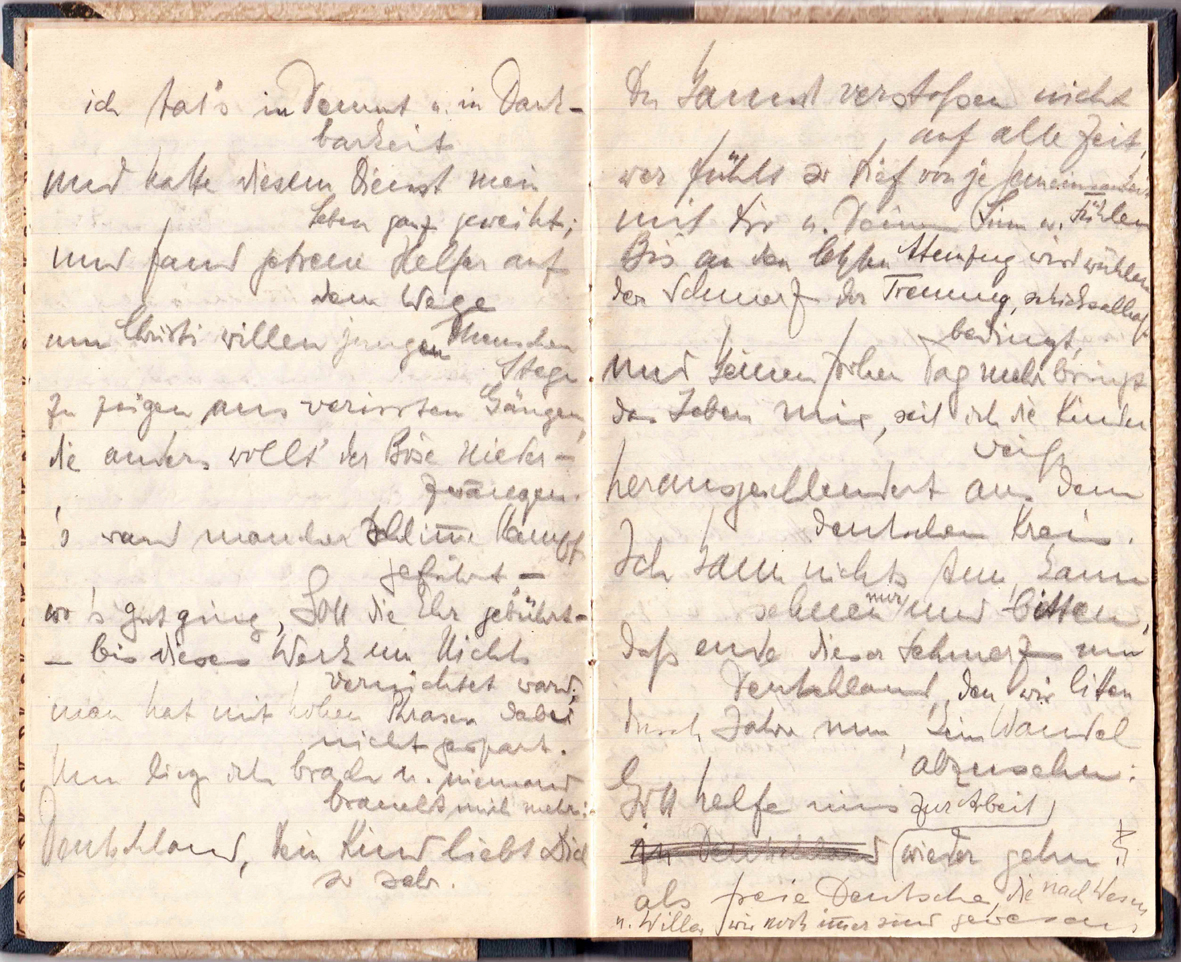 ich tat's in Demut u. in Dank-
barkeit
und hatte diesem Dienst mein
Leben ganz geweiht;
und fand getreue Helfer auf
dem Wege
um Christi willen jungen Menschen
Stege
zu zeigen aus verirrten Gängen,
die anders wollt' der Böse nieder-
zwängen.
's ward mancher schlim̅e Kampf
geführt —
wo's gut ging, Gott die Ehr gebührt –
– bis dieses Werk um Nichts
vernichtet ward;
man hat mit hohen Phrasen dabei
nicht gespart.
Nun lieg ich brach u. niemand
braucht mich mehr:
Deutschland, Dein Kind liebt Dich
so sehr.
Du kannst verstoßen nicht
auf alle Zeit,
wer fühlt so tief von je
mit Dir u. Deinem Sinn u. Fühlen
Bis an den letzten Atemzug wird wühlen
der Schmerz der Trennung, schicksalhaft
bedingt,
und keinen frohen Tag mehr bringt
das Leben mir, seit ich die Kinder
weiß
herausgeschleudert aus dem
deutschen Kreis.
Ich kann nichts tun, kann
sehnen nur und bitten,
daß ende dieser Schmerz um
Deutschland, den wir litten
durch Jahre nun, kein Wandel
abzusehen:
Gott helfe uns zur Arbeit
in Deutschland wieder gehn
als freie Deutsche, die nach Wesen
u. Willen wir noch im̅er sind gewesen.